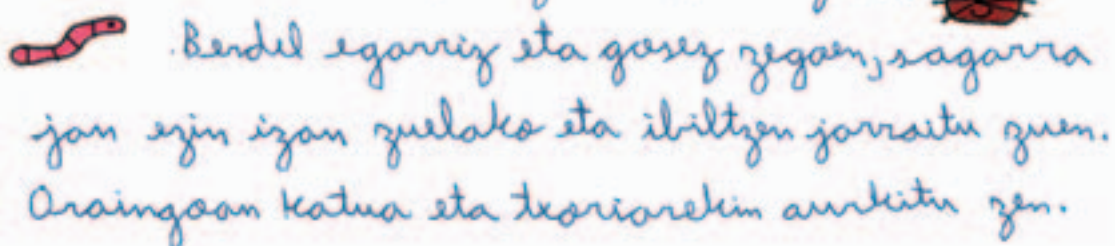 Bendel egarriz eta gosez zegoen, sagarra
jan ezin izan zuelako eta ibiltzen jarraitu zuen.
Oraingoan katua eta txoriarekin aurkitu zen.